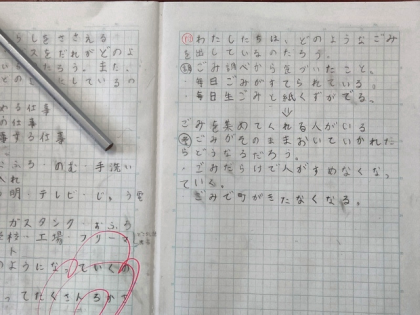 らしをささえる
スをだれがどのよ
いるだろう。また、
しているの
める仕事
の仕事
する仕事
ふろ・めむ・手洗い
入れ
明・テレビ・じゅう電
ガスタンク・おふろ
工場
ト
のようになっていくの
ってたくさんろかさ
わたしたちは、どのようなごみ
を出しているのだろう
ごみ調べから気づいたこと。
・毎日ごみがすてられている。
・毎日生ごみと紙くずがでる。
⇩
ごみを集めてくれる人がいる
ごみがそのままおいていかれた
らどうなるだろう。
・ごみだらけで人がすめなくなっ
ていく。
ごみで町がきたなくなる。